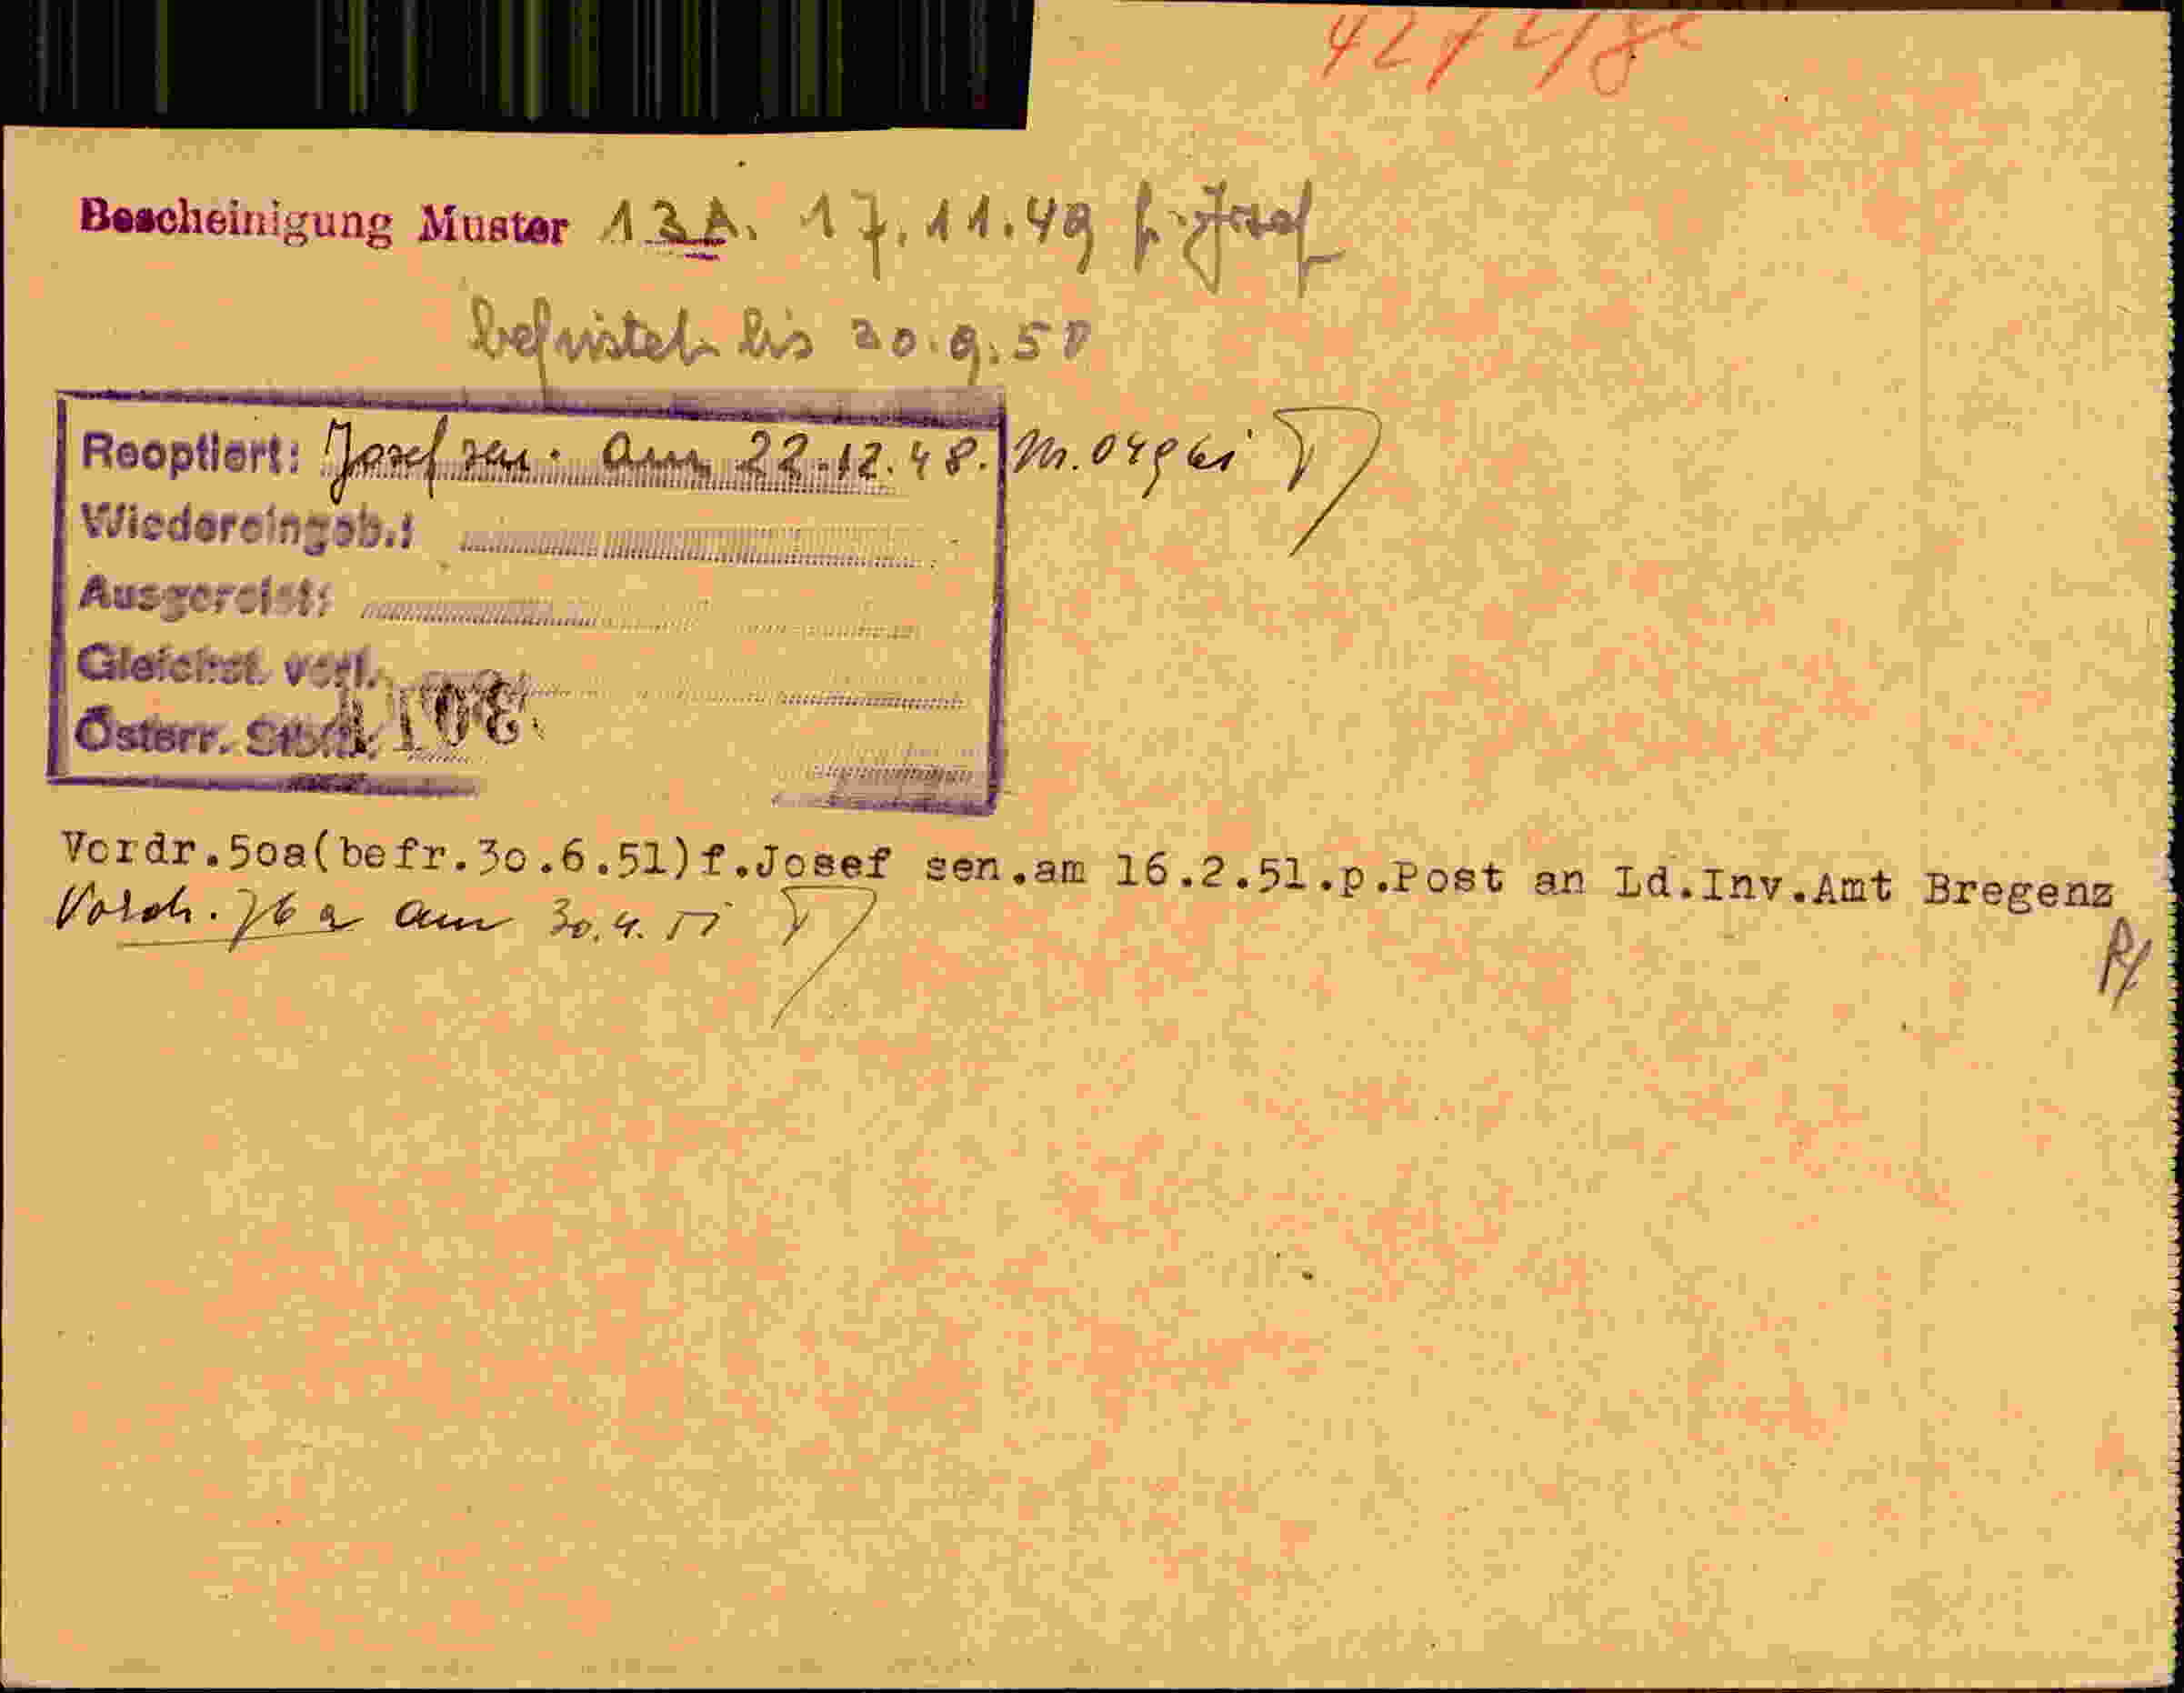 Bescheinigung Muster 13A. 17.11.49 f. Josef
befristet bis 30.9.50
Reoptiert: Josef sen. am 22.12.48.
Wiedereingeb.:
Ausgereist:
Gleichst. verl.
Österr.
Vordr.50a(befr.30.6.51)f.Josef sen.am 16.2.51.p.Post an Ld.Inv.Amt Bregenz
Vordr. 76a am 30.4.51